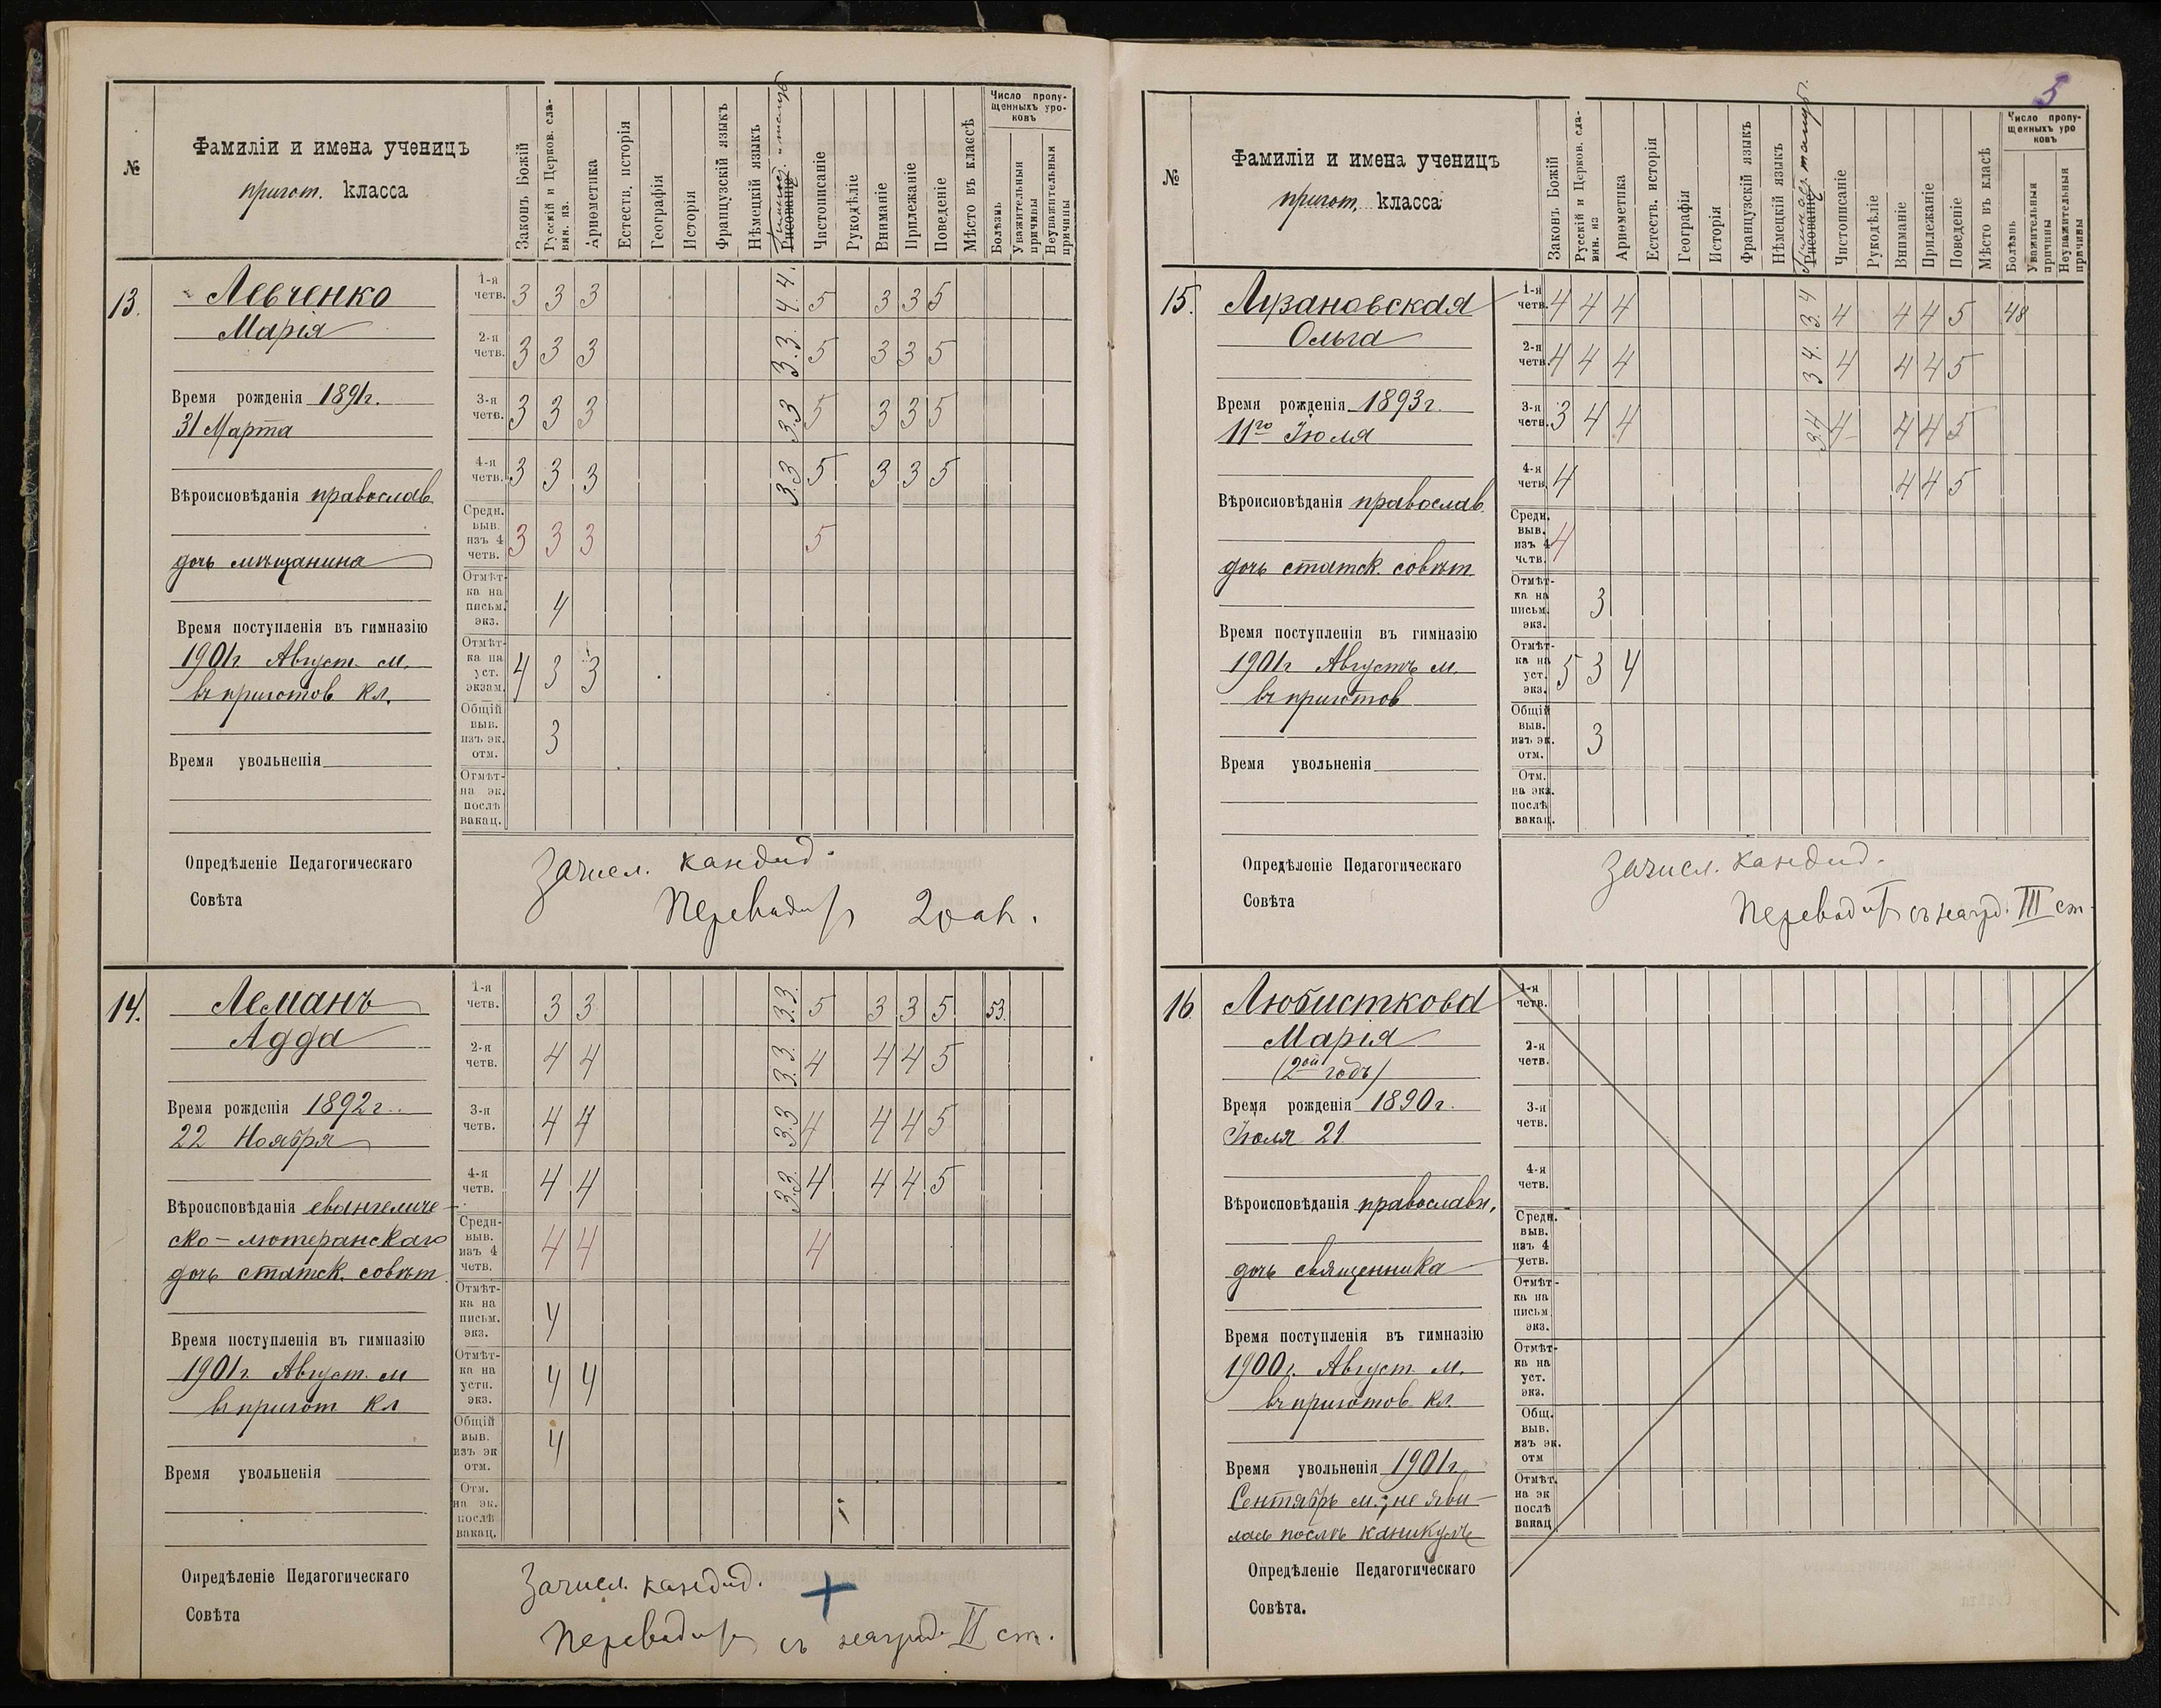 №
Фамиліи и имена ученицъ
пригот. класса
Законъ Божій
Русскій и Церков. сла-
вян. яз.
Ариѳметика
Естеств. исторія
Географія
Исторія
Французскій языкъ
Нѣмецкій языкъ
Рисованіе
Чистописаніе
Рукодѣліе
Вниманіе
Прилежаніе
Поведеніе
Мѣсто въ классѣ
Число пропу-
щенныхъ уро-
ковъ
Болѣзнь
Уважительныя
причины
Неуважительныя
причины
13.
Левченко
Марія
Время рожденія 1891г.
31 Марта
Вѣроисповѣданія православ.
дочь мѣщанина
Время поступленія въ гимназію
1901г Август. м.
въ приготов кл.
Время увольненія
1-я четв. 3 3 3 4.4. 5 3 3 5
2-я четв. 3 3 3 3.3. 5 3 3 5
3-я четв. 3 3 3 3.3 5 3 3 5
4-я четв. 3 3 3 3.3 5 3 3 5
Средн. выв. изъ 4 четв. 3 3 3 5
Отмѣт- ка на письм. экз. 4
Отмѣт- ка на уст. экзам. 4 3 3
Общій выв. изъ эк. отм. 3
Отмѣт- на эк. послѣ вакац.
Опредѣленіе Педагогическаго
Совѣта
Зачисл. кандид.
14.
Леманъ
Адда
Время рожденія 1892г.
22 Ноября
Вѣроисповѣданія евангеличе-
ско-лютеранскаго
дочь статск. совѣт.
Время поступленія въ гимназію
1901г. Август. м
въ пригот кл
Время увольненія
1-я четв. 3 3 3.3. 5 3 3 5 53.
2-я четв. 4 4 3.3. 4 4 4 5
3-я четв. 4 4 3.3 4 4 4 5
4-я четв. 4 4 3.3. 4 4 4 5
Средн- выв. изъ 4 четв. 4 4 4
Отмѣт- ка на письм. экз. 4
Отмѣт- ка на устн. экз. 4 4
Общій выв. изъ эк отм. 4
Отм. на эк. послѣ вакац.
Опредѣленіе Педагогическаго
Совѣта
Зачисл. кандид. +
съ наград. II ст.
5
№
Фамиліи и имена ученицъ
пригот. класса
Законъ Божій
Русскій и Церков. сла-
вян. яз
Ариѳметика
Естеств. исторія
Географія
Исторія
Французскій языкъ
Нѣмецкій языкъ
Рисованіе
Чистописаніе
Рукодѣліе
Вниманіе
Прилежаніе
Поведеніе
Мѣсто въ классѣ
Число пропу-
щенныхъ уро
ковъ
Болѣзнь
Уважительныя
причины
Неуважительныя
причины
15.
Лузановская
Ольга
Время рожденія 1893г.
11го Іюля
Вѣроисповѣданія православ.
дочь статск. совѣт.
Время поступленія въ гимназію
1901г Августъ м.
въ приготов
Время увольненія
1-я четв. 4 4 4 3.4 4 4 4 5 48
2-я четв. 4 4 4 3 4. 4 4 4 5
3-я четв. 3 4 4 3 4 4 4 4 5
4-я четв. 4 4 4 5
Средн. выв. изъ 4 четв. 4
Отмѣт- ка на письм. экз. 3
Отмѣт- ка на уст. экз. 5 3 4
Общій выв. изъ эк. отм. 3
Отм. на экз. послѣ вакац.
Опредѣленіе Педагогическаго
Совѣта
Зачисл. кандид.
съ наград. III ст.
16.
Любисткова
Марія
(2ой годъ)
Время рожденія 1890г.
Іюля 21
Вѣроисповѣданія православн.
дочь священника
Время поступленія въ гимназію
1900г. Август. м.
въ приготов. кл.
Время увольненія 1901г.
Сентябрь м.; не яви-
лась послѣ каникулъ
1-я четв.
2-я четв.
3-я четв.
4-я четв.
Средн. выв. изъ 4 четв.
Отмѣт- ка на письм. экз.
Отмѣт- ка на уст. экз.
Общ. выв. изъ эк. отм
Отмѣт. на эк послѣ вакац
Опредѣленіе Педагогическаго
Совѣта.